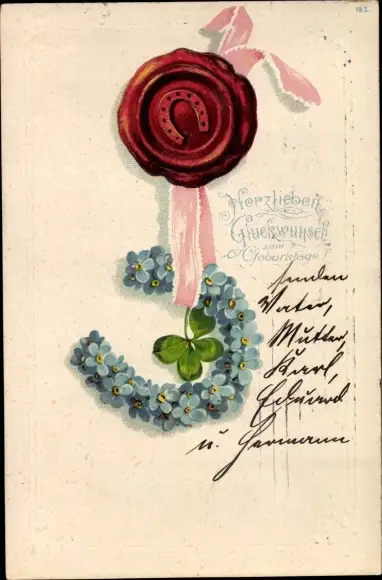 182.
Herzlichen
Glückwunsch
zum
Geburtstage!
senden
Vater,
Mutter,
Karl,
Eduard
u. Hermann